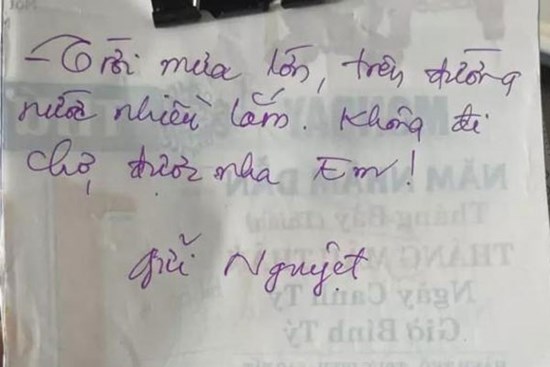 - Trời mưa lớn, trên đường
nước nhiều lắm. Không đi
chợ, được nha Em!
gửi Nguyệt
MONDAY
THỨ
NĂM NHÂM DẦN
Tháng Bảy (Thiếu)
THÁNG
Ngày Canh Tý
Giờ Bính Tý